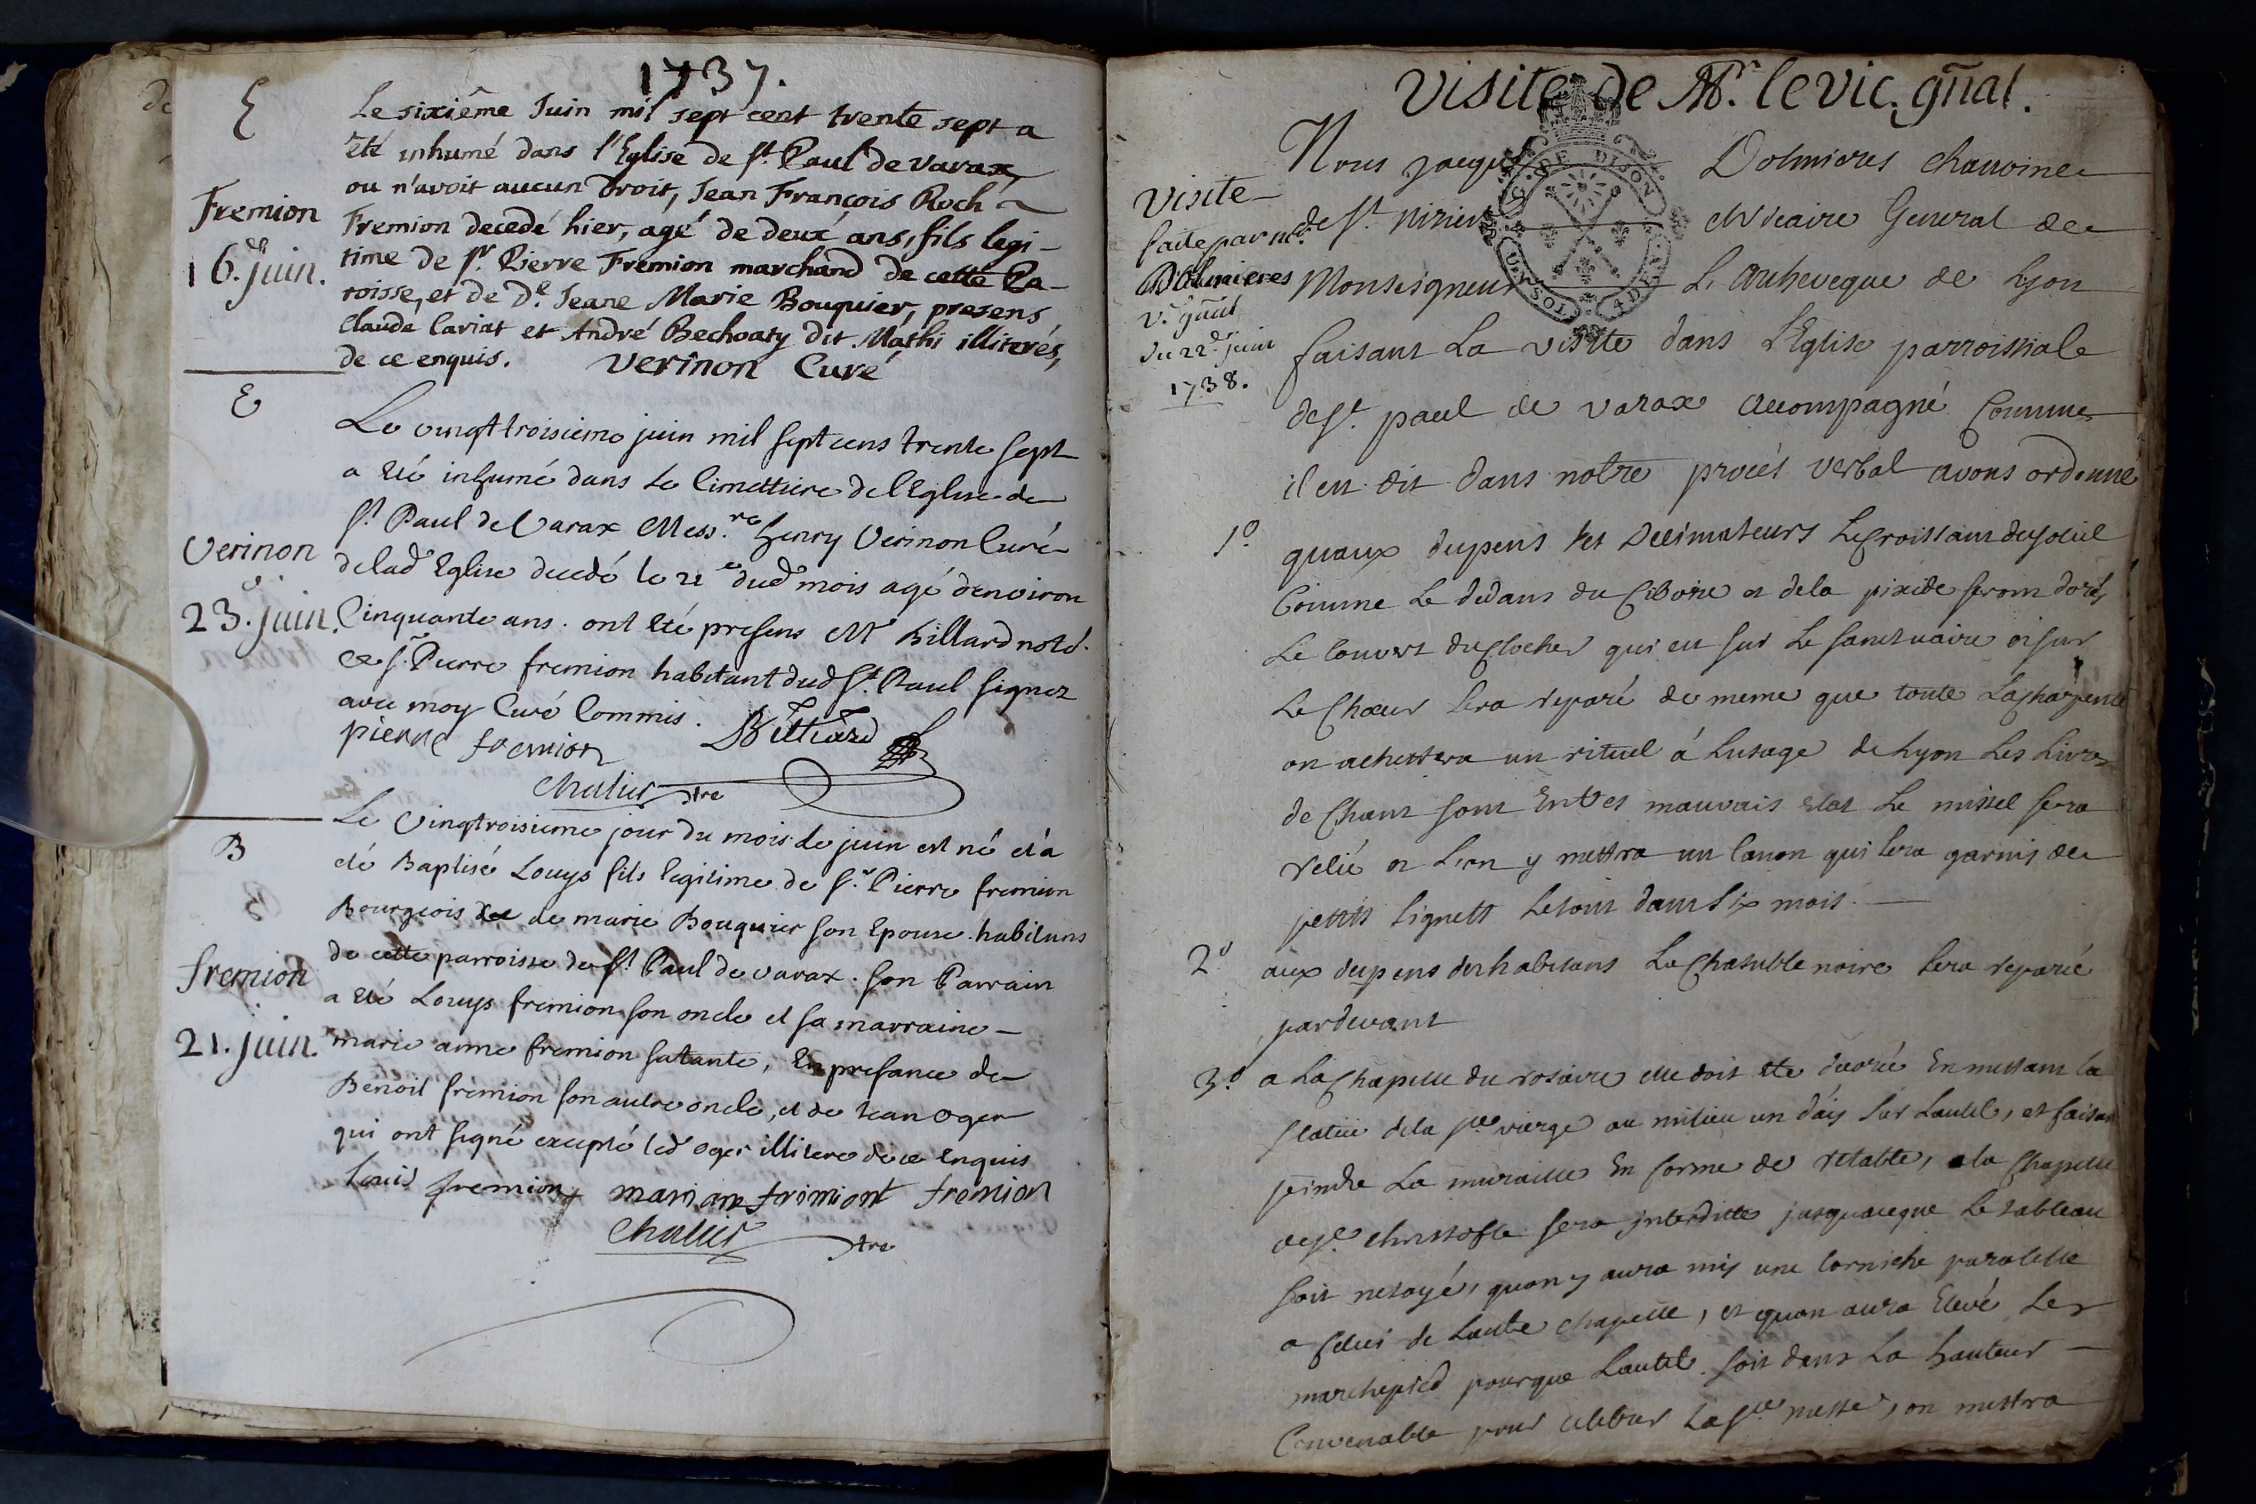 1737.
E
Fremion
16.e juin.
Le sixiême Juin mil sept cent trente sept a
été inhumé dans l'Eglise de St. Paul de Varax,
ou n'avoit aucun Droit, Jean François Roch
Fremion decedé hier, agé de deux ans, fils legi-
time de Sr. Pierre Fremion marchand de cette Pa-
roisse, et de De. Jeane Marie Bouquier, presens
Claude Cariat et André Bechoaty dit Mathi illiterés,
de ce enquis. Verinon Curé
E
Verinon
23.e juin.
Le vingt troisieme juin mil sept cens trente sept
a eté inhumé dans le Cimettiere de l'Eglise de
St Paul de Varax Mess.re Henry Verinon Curé
de lade Eglise decedé le 22e dud mois agé denviron
Cinquante ans. ont eté presens Mr Billard
et Sr. Pierre fremion habitant dud St. Paul signez
avec moy Curé Commis.
pierre fremion Billiard
Chalier ptre
B
fremion
21. juin.
Le Vingtroisieme jour du mois de juin est né et a
eté Baptisé Louys fils legitime de Sr. Pierre fremion
Bourgeois et de marie Bouquier son Epouse habitans
de cette parroisse de St Paul de varax. son Parrain
a eté Louys fremion son oncle et sa marraine
marie anne fremion sa tante, En presance de
Benoit fremion son autre oncle, et de Jean Oger
qui ont signé excepté led Oger illitere de ce Enquis
Louis fremion marian frimiont fremion
Chalier ptre
Visite de Mr. le vic. gñal.
visite
faite par mr.
Dolmieres
v. gñal
du 22e juin
1738.
GEN. DE DIJON
Nous jacques Dolmieres chanoine
de St. Nizier et Vicaire General de
Monseigneur L'archeveque de Lyon
faisant La visite dans L'Eglise parroissiale
de St. paul de varax accompagné Comme
il est dit dans notre procés verbal avons ordonné
1.o quaux depens des Decimateurs Le Croissant du soleil
Comme Le dedans du Ciboire et de la pixide seront dorés,
Le Couvert du Clocher qui est sur Le sanctuaire et sur
Le Chœur sera reparé de meme que toute La Charpente
on achettera un rituel á Lusage de Lyon Les Livres
de Chant sont En tres mauvais etat Le missel sera
relié et Lon y mettra un Canon qui sera garnis de
petits signets Le tout dans six mois.
2.o aux depens des habitans La Chasuble noire sera reparée
par devant
3.o a La Chapelle du rosaire elle doit etre decorée En mettant la
statue de la ste vierge au milieu un dais sur Lautel, et faisant
peindre La muraille En forme de retable, a la Chapelle
de St. christofle sera interditte jusquaceque Le tableau
soit netoyé, quon y aura mis une Corniche paralelle
a Celui de Lautre chapelle, et quon aura Elevé Le
marchepied pourque Lautel soit dans La hauteur
Convenable pour celebrer La ste messe, on mettra